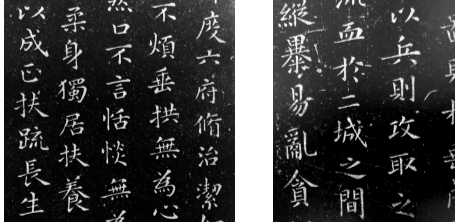 度六府脩治潔
不煩垂拱無為心
然口不言恬惔無
柔身獨居扶養
以成正扶疏長生
以兵則攻取之
流血於二城之間
縱暴易亂貪